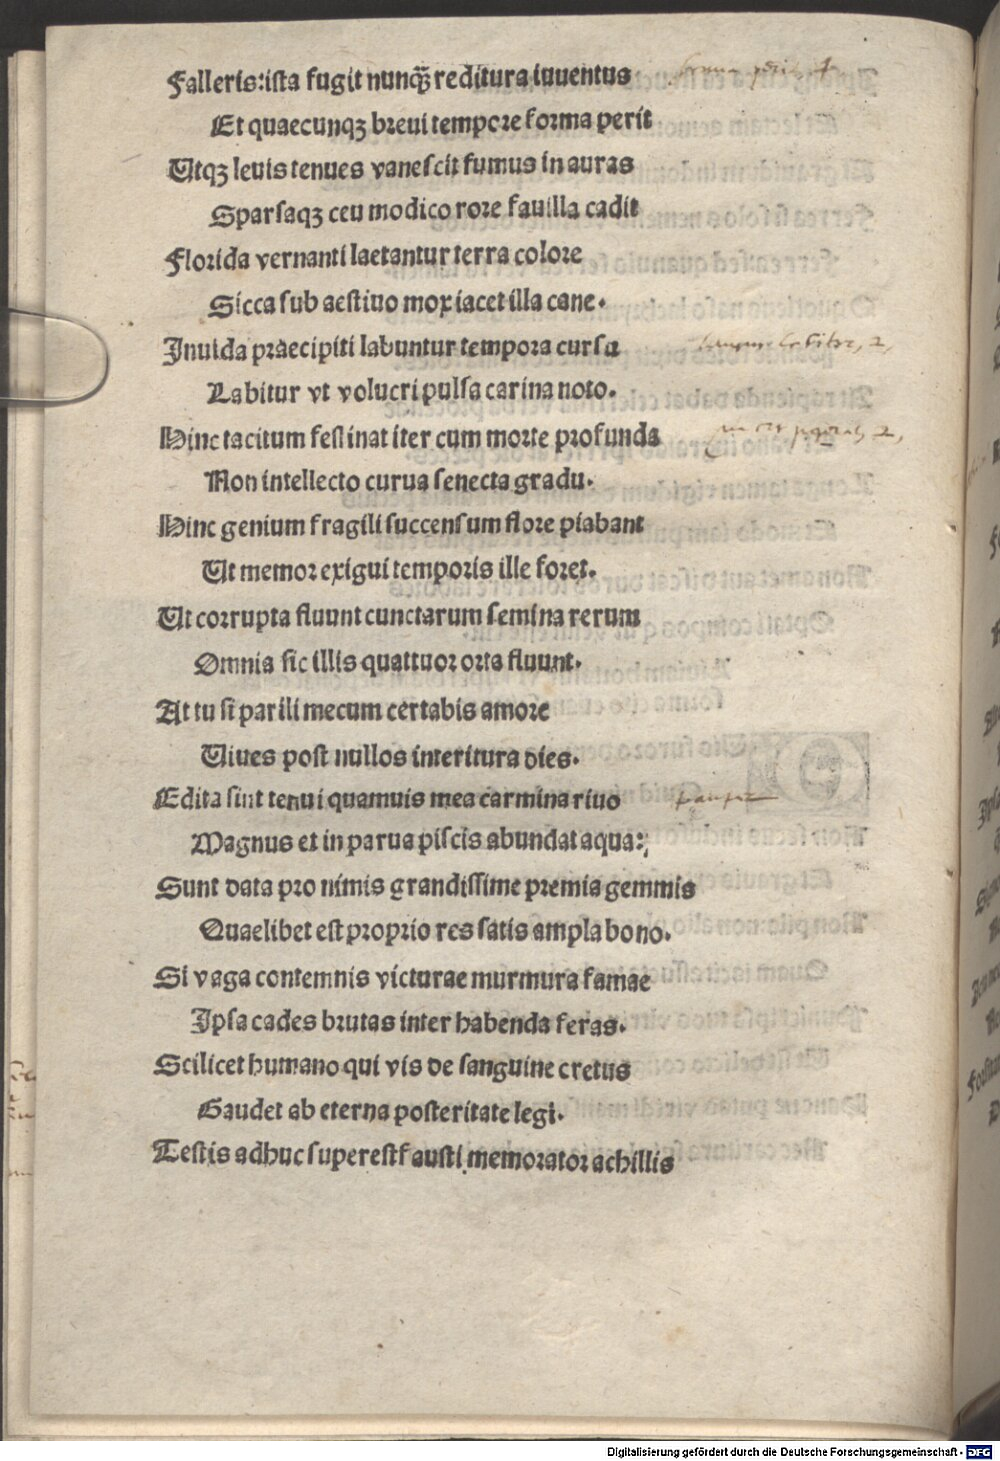 Falleris: ista fugit nunq̃ reditura iuuentus
Et quaecunqꝫ breui tempore forma perit
Utqꝫ leuis tenues vanescit fumus in auras
Sparsaqꝫ ceu modico rore fauilla cadit
Florida vernanti laetantur terra colore
Sicca sub aestiuo mox iacet illa cane.
Inuida praecipiti labuntur tempora cursu
Labitur vt volucri pulsa carina noto.
Hinc tacitum festinat iter cum morte profunda
Non intellecto curua senecta gradu.
Hinc genium fragili succensum flore piabant
Ut memor exigui temporis ille foret.
Ut corrupta fluunt cunctarum semina rerum
Omnia sic illis quattuor orta fluunt.
At tu si parili mecum certabis amore
Uiues post nullos interitura dies.
Edita sint tenui quamuis mea carmina riuo
Magnus et in parua piscis abundat aqua:
Sunt data pro nimis grandissime premia gemmis
Quaelibet est proprio res satis ampla bono.
Si vaga contemnis victurae murmura famae
Ipsa cades brutas inter habenda feras.
Scilicet humano qui vis de sanguine cretus
Gaudet ab eterna posteritate legi.
Testis adhuc superest fausti memorator achillis
Digitalisierung gefördert durch die Deutsche Forschungsgemeinschaft - DFG